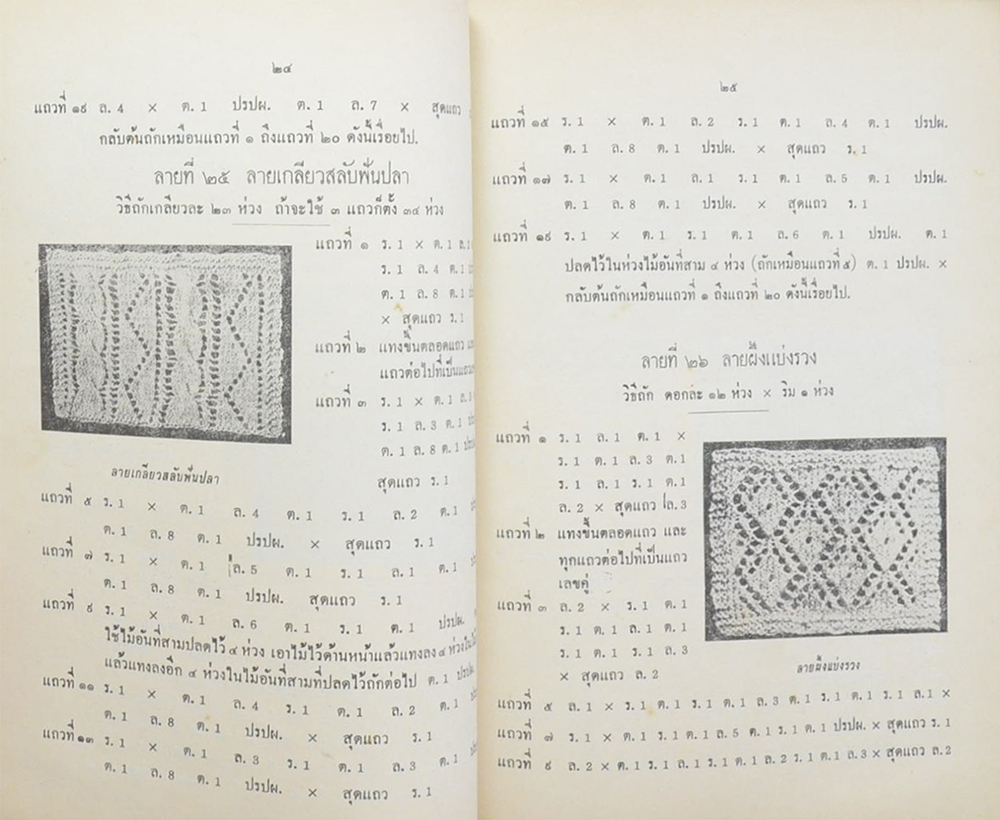 ๒๔
แถวที่ ๑๙ ล. 4 × ต. 1 ปรปผ. ต. 1 ล. 7 × สุดแถว
กลับต้นถักเหมือนแถวที่ ๑ ถึงแถวที่ ๒๐ ดังนี้เรื่อยไป.
ลายที่ ๒๕ ลายเกลียวสลับฟันปลา
วิธีถักเกลียวละ ๒๓ ห่วง ถ้าจะใช้ ๓ แถวก็ตั้ง ๓๔ ห่วง
แถวที่ ๑ ร. 1 × ต. 1 ล.
ร. 1 ล. 4 ต. 1
ต. 1 ล. 8 ต. 1
× สุดแถว ร. 1
แถวที่ ๒ แทงขึ้นตลอดแถว
แถวต่อไปที่เป็นแถว
แถวที่ ๓ ร. 1 × ต. 1 ล.
ร. 1 ล. 3 ต. 1
ต. 1 ล. 8 ต. 1
สุดแถว ร. 1
ลายเกลียวสลับฟันปลา
แถวที่ ๕ ร. 1 × ต. 1 ล. 4 ต. 1 ร. 1 ล. 2 ต. 1
ต. 1 ล. 8 ต. 1 ปรปผ. × สุดแถว ร. 1
แถวที่ ๗ ร. 1 × ต. 1 ล. 5 ต. 1 ร. 1 ล. 1 ต. 1
ต. 1 ล. 8 ต. 1 ปรปผ. สุดแถว ร. 1
แถวที่ ๙ ร. 1 × ต. 1 ล. 6 ต. 1 ร. 1 ต. 1 ปรปผ.
ใช้ไม้อันที่สามปลดไว้ ๔ ห่วง เอาไม้ไว้ด้านหน้าแล้วแทงลง ๔ ห่วงใน
แล้วแทงลงอีก ๔ ห่วงในไม้อันที่สามที่ปลดไว้ถักต่อไป ต. 1 ปรปผ.
แถวที่ ๑๑ ร. 1 × ต. 1 ล. 4 ร. 1 ต. 1 ล. 2 ต. 1
ต. 1 ล. 8 ต. 1 ปรปผ. × สุดแถว ร. 1
แถวที่ ๑๓ ร. 1 × ต. 1 ล. 3 ร. 1 ต. 1 ล. 3 ต. 1
ต. 1 ล. 8 ต. 1 ปรปผ. × สุดแถว ร. 1
๒๕
แถวที่ ๑๕ ร. 1 × ต. 1 ล. 2 ร. 1 ต. 1 ล. 4 ต. 1 ปรปผ.
ต. 1 ล. 8 ต. 1 ปรปผ. × สุดแถว ร. 1
แถวที่ ๑๗ ร. 1 × ต. 1 ล. 1 ร. 1 ต. 1 ล. 5 ต. 1 ปรปผ.
ต. 1 ล. 8 ต. 1 ปรปผ. × สุดแถว ร. 1
แถวที่ ๑๙ ร. 1 × ต. 1 ร. 1 ต. 1 ล. 6 ต. 1 ปรปผ. ต. 1
ปลดไว้ในห่วงไม้อันที่สาม ๔ ห่วง (ถักเหมือนแถวที่ ๕) ต. 1 ปรปผ. ×
กลับต้นถักเหมือนแถวที่ ๑ ถึงแถวที่ ๒๐ ดังนี้เรื่อยไป.
ลายที่ ๒๖ ลายผึ้งแบ่งรวง
วิธีถัก ดอกละ ๑๒ ห่วง × ริม ๑ ห่วง
แถวที่ ๑ ร. 1 ล. 1 ต. 1 ×
ร. 1 ต. 1 ล. 3 ต. 1
ร. 1 ล. 1 ร. 1 ต. 1
ล. 2 × สุดแถว ล. 3
แถวที่ ๒ แทงขึ้นตลอดแถว และ
ทุกแถวต่อไปที่เป็นแถว
เลขคู่
แถวที่ ๓ ล. 2 × ร. 1 ต. 1
ร. 1 ต. 1 ล. 1 ต. 1
ร. 1 ต. 1 ร. 1 ล. 3
× สุดแถว ล. 2
ลายผึ้งแบ่งรวง
แถวที่ ๕ ล. 1 × ร. 1 ต. 1 ร. 1 ต. 1 ล. 3 ต. 1 ร. 1 ต. 1 ร. 1 ล. 1 ×
แถวที่ ๗ ร. 1 × ต. 1 ร. 1 ต. 1 ล. 5 ต. 1 ร. 1 ต. 1 ปรปผ. × สุดแถว ร. 1
แถวที่ ๙ ล. 2 × ต. 1 ร. 1 ล. 1 ร. 1 ต. 1 ล. 2 ร. 1 ต. 1 ล. 3 × สุดแถว ล. 2